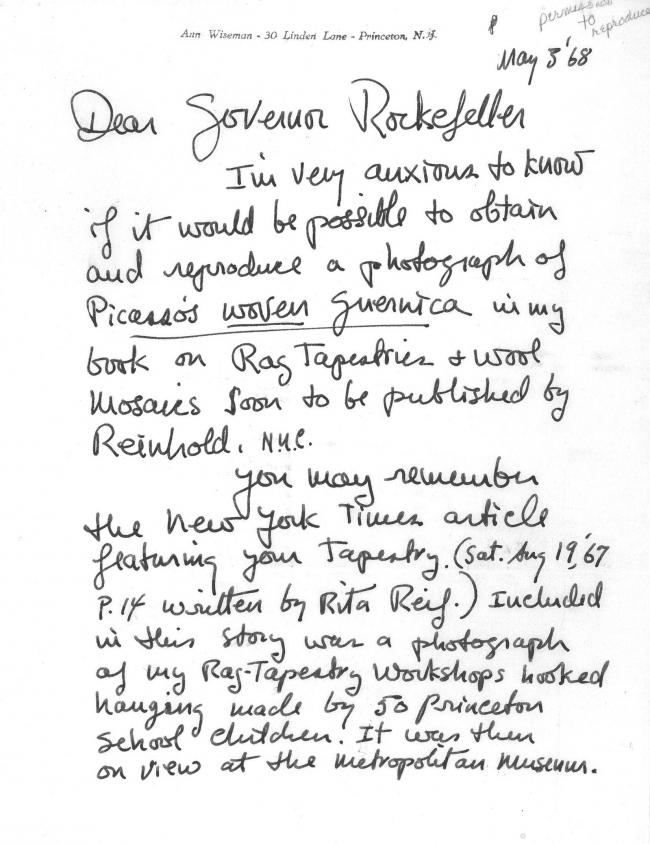 Ann Wiseman - 30 Linden Lane - Princeton, N.J.
permission
to
reproduce
May 3 '68
Dear Governor Rockefeller
I'm very anxious to know
if it would be possible to obtain
and reproduce a photograph of
Picasso's woven Guernica in my
book on Rag Tapestries & wool
Mosaics soon to be published by
Reinhold, N.Y.C.
You may remember
the New York Times article
featuring your Tapestry. (Sat. Aug 19, '67
P. 14 written by Rita Reif.) Included
in this story was a photograph
of my Rag-Tapestry Workshops hooked
hanging made by 50 Princeton
School Children. It was then
on view at the Metropolitan Museum.